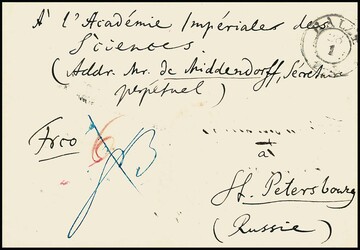 À l'Académie Impériales des
Sciences.
(Addr. Mr. de Middendorff, Secrétaire
perpetuel)
Frco
à
St. Petersbourg
(Russie)